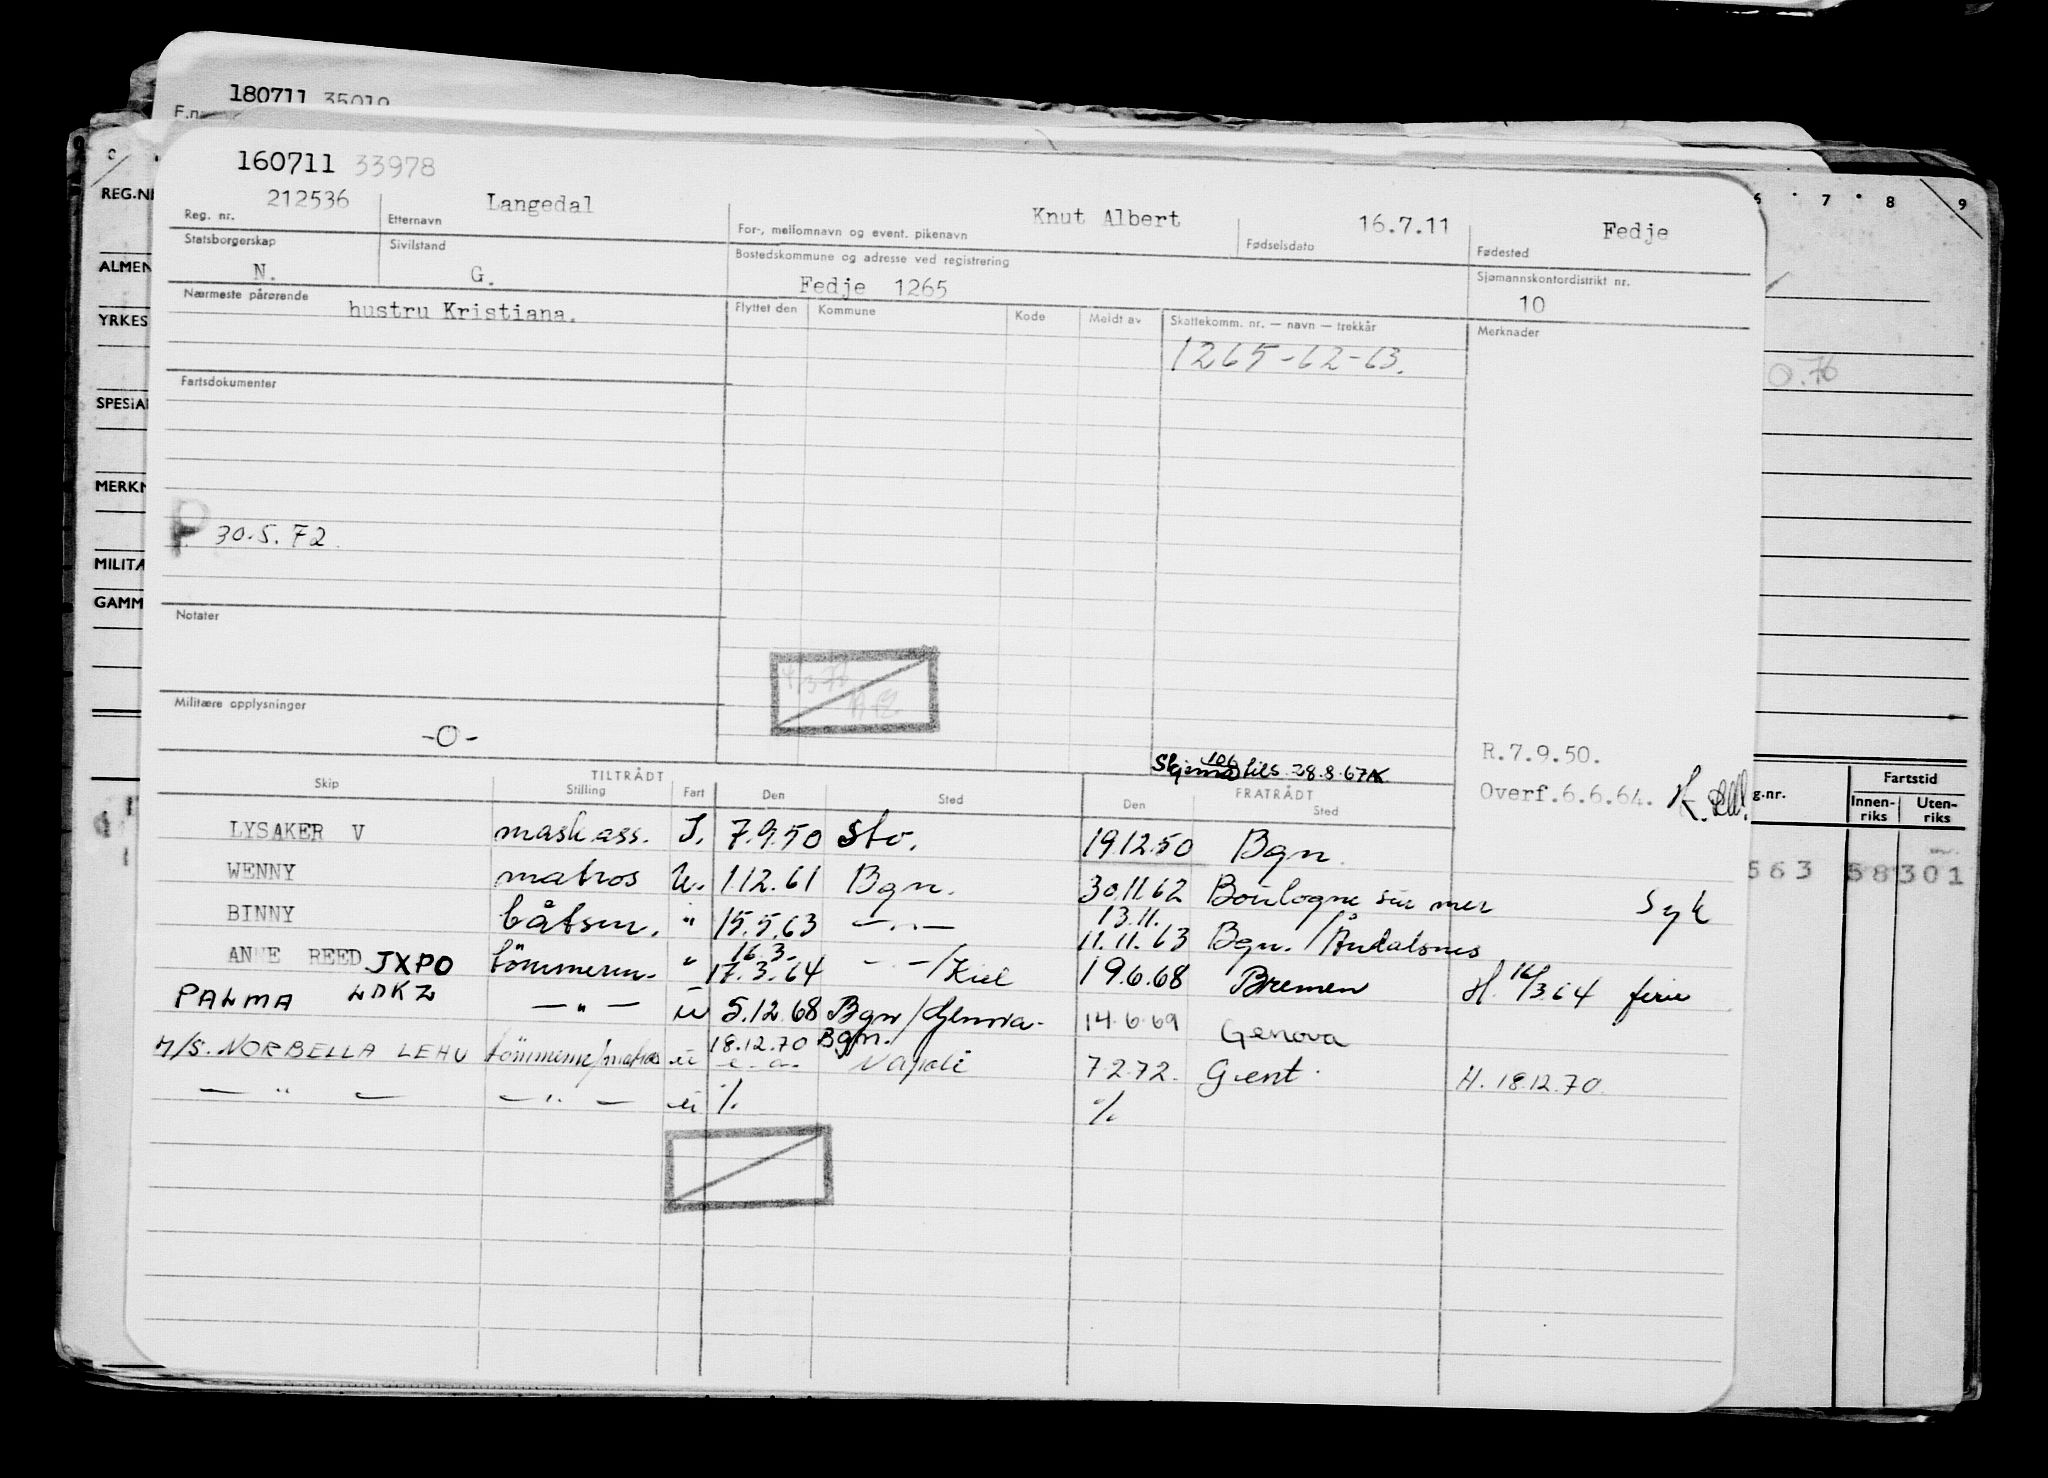 180711 35019
160711 33978
REG.NR
Reg. nr. 212536 Etternavn Langedal For-, mellomnavn og event. pikenavn Knut Albert Fødselsdato 16.7.11 Fødested Fedje
6 7 8 9
Statsborgerskap N. Sivilstand G. Bostedskommune og adresse ved registrering Fedje 1265 Sjømannskontordistrikt nr. 10
ALMEN
Nærmeste pårørende hustru Kristiana. Flyttet den Kommune Kode Meldt av Skattekomm. nr. — navn — trekkår Merknader
YRKES
1265-62-63.
Fartsdokumenter
SPESIAL
MERKN
P 30.5.72
MILITÆ
GAMM
Notater
Militære opplysninger
-O-
R.7.9.50.
Skjema 106 tils. 28.8.67
Overf.6.6.64.
Skip TILTRÅDT Stilling Fart Den Sted FRATRÅDT Den Sted
g.nr. Fartstid Innen-riks Uten-riks
LYSAKER V mask.ass. I. 7.9.50 Sto. 19.12.50 Bgn.
563 58301
WENNY matros U. 1.12.61 Bgn. 30.11.62 Boulogne sur mer Syk
BINNY båtsm. " 15.5.63 —"— 13.11. 11.11.63 Bgn./Åndalsnes
ANNE REED JXPO tömmerm. " 16.3. 17.3.64 —"—/Kiel 19.6.68 Bremen H. 16/3.64 ferie
PALMA LDKZ —"— u 5.12.68 Bgn/Genova. 14.6.69 Genova
M/S. NORBELLA LEHU tömmerm/matros u 18.12.70 Bgn. Napoli 7.2.72. Gent. H. 18.12.70.
— " — — " — u % %